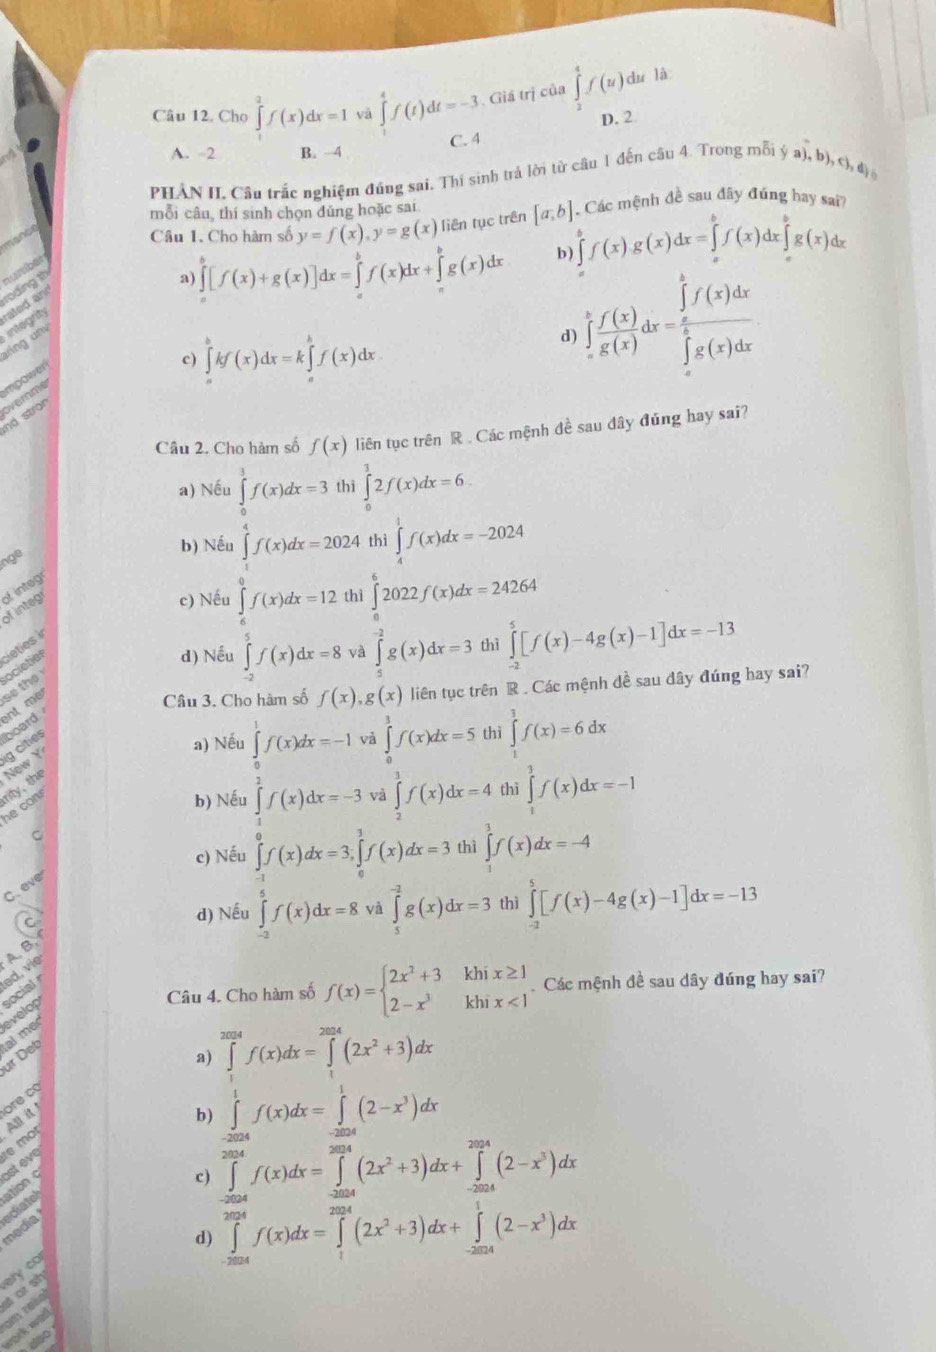 Câu 12. Cho \int_{1}^{2} f(x)dx = 1 và \int_{1}^{4} f(t)dt = -3. Giá trị của \int_{2}^{4} f(u)du là:
A. -2 B. -4 C. 4 D. 2
PHẦN II. Câu trắc nghiệm đúng sai. Thí sinh trả lời từ câu 1 đến câu 4. Trong mỗi ý a), b), c), d) ở
mỗi câu, thí sinh chọn đúng hoặc sai.
Câu 1. Cho hàm số y = f(x), y = g(x) liên tục trên [a;b]. Các mệnh đề sau đây đúng hay sai?
a) \int_{a}^{b} [f(x)+g(x)]dx = \int_{a}^{b} f(x)dx + \int_{a}^{b} g(x)dx b) \int_{a}^{b} f(x).g(x)dx = \int_{a}^{b} f(x)dx.\int_{a}^{b} g(x)dx
c) \int_{a}^{b} kf(x)dx = k\int_{a}^{b} f(x)dx. d) \int_{a}^{b} \frac{f(x)}{g(x)}dx = \frac{\int_{a}^{b} f(x)dx}{\int_{a}^{b} g(x)dx}.
Câu 2. Cho hàm số f(x) liên tục trên ℝ. Các mệnh đề sau đây đúng hay sai?
a) Nếu \int_{0}^{3} f(x)dx = 3 thì \int_{0}^{3} 2f(x)dx = 6.
b) Nếu \int_{1}^{4} f(x)dx = 2024 thì \int_{4}^{1} f(x)dx = -2024
c) Nếu \int_{6}^{0} f(x)dx = 12 thì \int_{0}^{6} 2022f(x)dx = 24264
d) Nếu \int_{-2}^{5} f(x)dx = 8 và \int_{5}^{-2} g(x)dx = 3 thì \int_{-2}^{5} [f(x)-4g(x)-1]dx = -13
Câu 3. Cho hàm số f(x), g(x) liên tục trên ℝ. Các mệnh đề sau đây đúng hay sai?
a) Nếu \int_{0}^{1} f(x)dx = -1 và \int_{0}^{3} f(x)dx = 5 thì \int_{1}^{3} f(x) = 6 dx
b) Nếu \int_{1}^{2} f(x)dx = -3 và \int_{2}^{3} f(x)dx = 4 thì \int_{1}^{3} f(x)dx = -1
c) Nếu \int_{-1}^{0} f(x)dx = 3, \int_{0}^{3} f(x)dx = 3 thì \int_{1}^{3} f(x)dx = -4
d) Nếu \int_{-2}^{5} f(x)dx = 8 và \int_{5}^{-2} g(x)dx = 3 thì \int_{-2}^{5} [f(x)-4g(x)-1]dx = -13
Câu 4. Cho hàm số f(x) = \begin{cases} 2x^2+3 & khi x ≥ 1 \\ 2-x^3 & khi x < 1 \end{cases}. Các mệnh đề sau đây đúng hay sai?
a) \int_{1}^{2024} f(x)dx = \int_{1}^{2024} (2x^2+3)dx
b) \int_{-2024}^{1} f(x)dx = \int_{-2024}^{1} (2-x^3)dx
c) \int_{-2024}^{2024} f(x)dx = \int_{-2024}^{2024} (2x^2+3)dx + \int_{-2024}^{2024} (2-x^3)dx
d) \int_{-2024}^{2024} f(x)dx = \int_{1}^{2024} (2x^2+3)dx + \int_{-2024}^{1} (2-x^3)dx